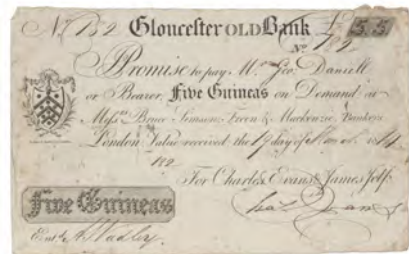 No 152 Gloucester OLD Bank £5.5
No 192
I Promise to pay Mr. Geo. Daniell
or Bearer, Five Guineas on Demand at
Messrs. Bruce Simson, Freer & Mackenzie, Bankers
London Value received the day of 1814
192
For Charles Evans & James Jelf.
Five Guineas
Entd.